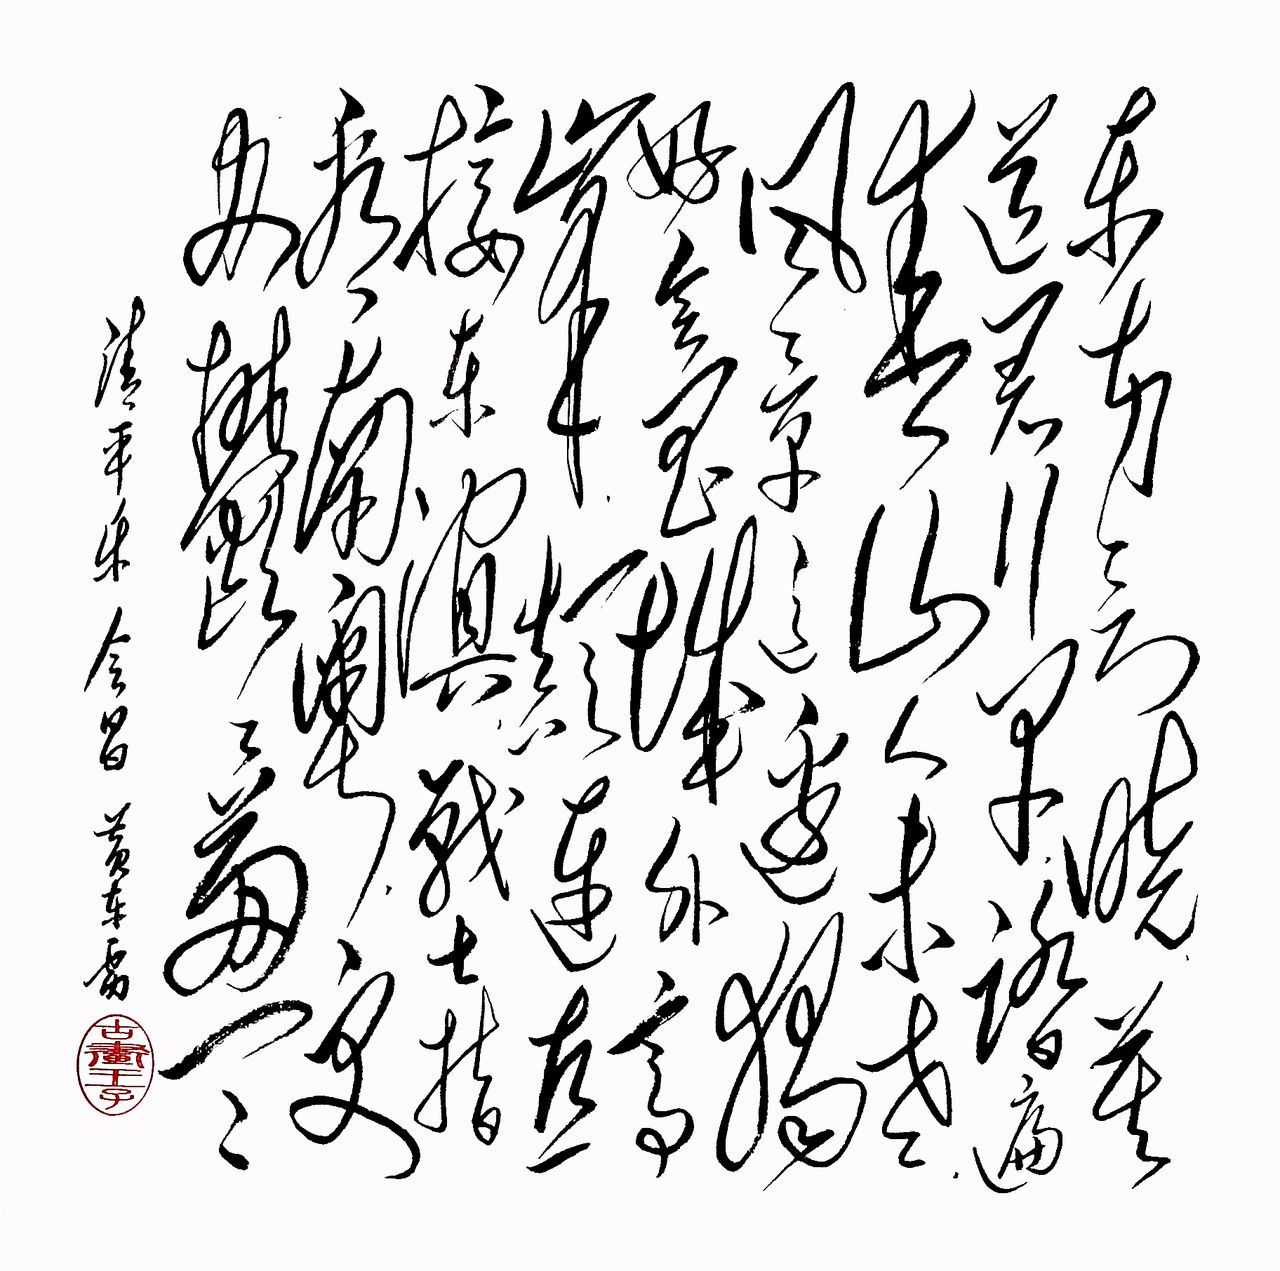 东方欲晓莫
道君行早踏遍
青山人未老
风景这边独
好会昌城外高
峰颠连直
接东溟战士指
看南粤更
加郁郁葱葱
清平乐会昌 黄东雷